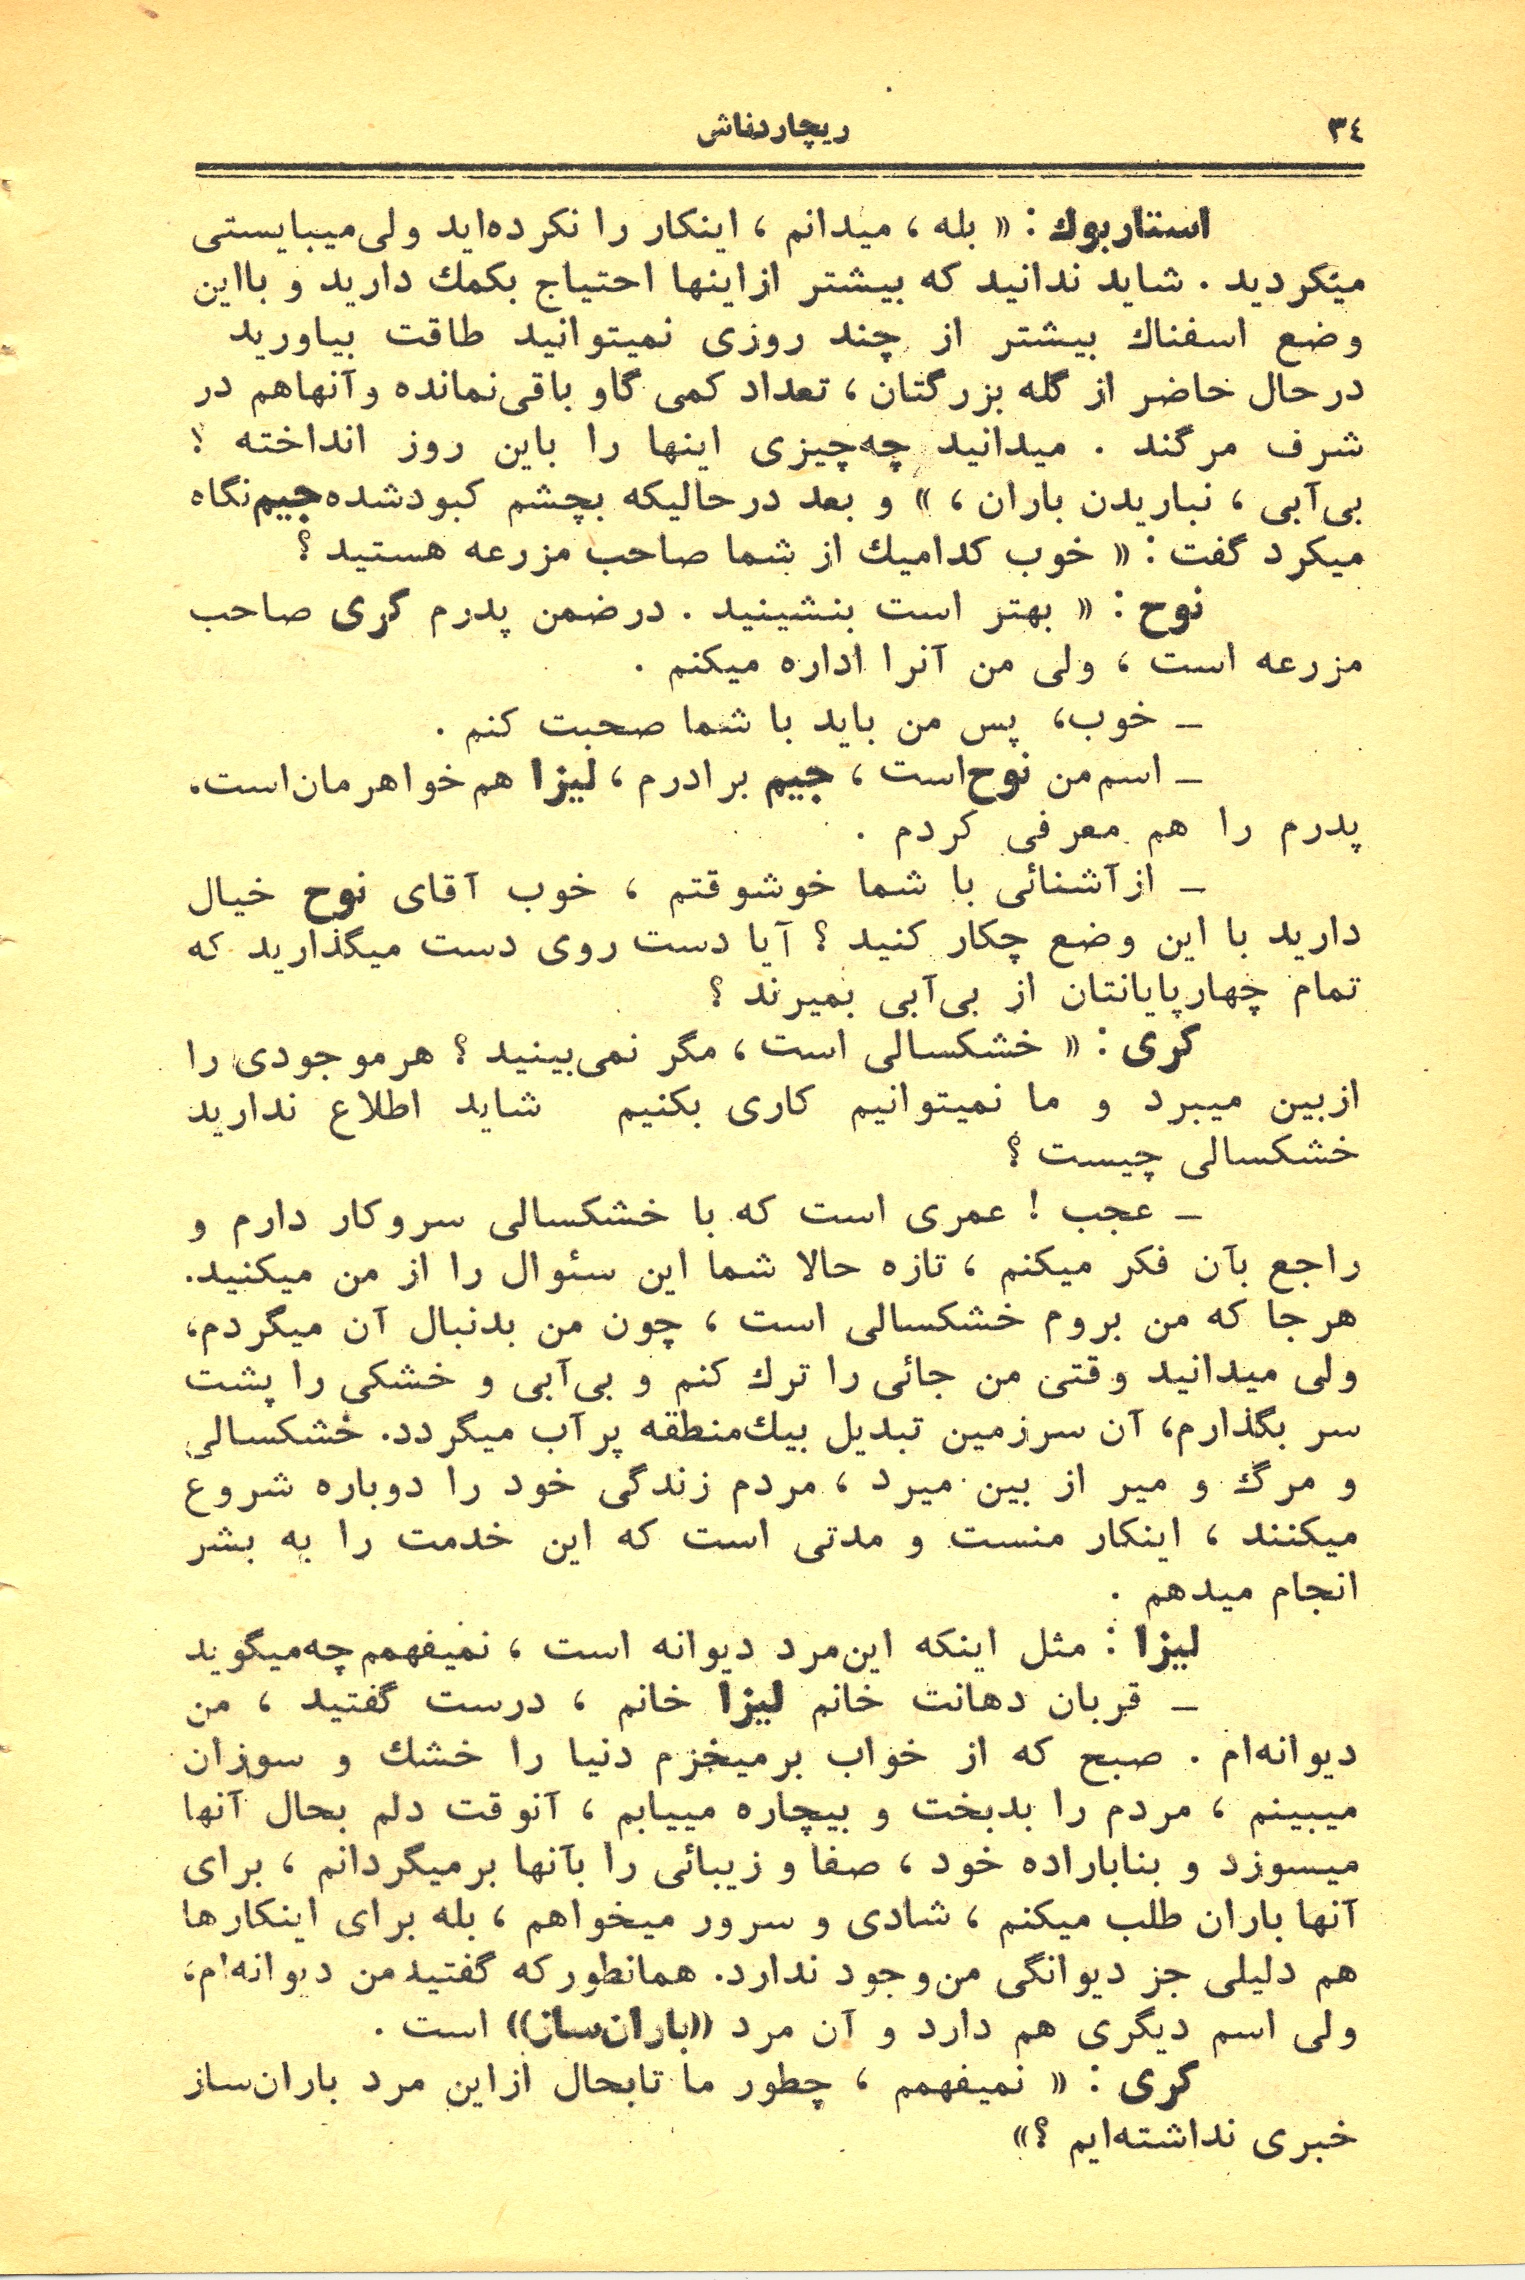 ۳٤
ریچاردناش
استاربوك : « بله ، میدانم ، اینکار را نکرده‌اید ولی‌میبایستی
میکردید . شاید ندانید که بیشتر ازاینها احتیاج بکمك دارید و بااین
وضع اسفناك بیشتر از چند روزی نمیتوانید طاقت بیاورید
درحال حاضر از گله بزرگتان ، تعداد کمی گاو باقی‌نمانده وآنهاهم در
شرف مرگند . میدانید چه‌چیزی اینها را باین روز انداخته ؟
بی‌آبی ، نباریدن باران ، » و بعد درحالیکه بچشم کبودشده جیم نگاه
میکرد گفت : « خوب کدامیك از شما صاحب مزرعه هستید ؟
نوح : « بهتر است بنشینید . درضمن پدرم گری صاحب
مزرعه است ، ولی من آنرا اداره میکنم .
ـ خوب، پس من باید با شما صحبت کنم .
ـ اسم‌من نوح‌است ، جیم برادرم ، لیزا هم‌خواهرمان‌است.
پدرم را هم معرفی کردم .
ـ ازآشنائی با شما خوشوقتم ، خوب آقای نوح خیال
دارید با این وضع چکار کنید ؟ آیا دست روی دست میگذارید که
تمام چهارپایانتان از بی‌آبی بمیرند ؟
گری : « خشکسالی است ، مگر نمی‌بینید ؟ هرموجودی را
ازبین میبرد و ما نمیتوانیم کاری بکنیم شاید اطلاع ندارید
خشکسالی چیست ؟
ـ عجب ! عمری است که با خشکسالی سروکار دارم و
راجع بآن فکر میکنم ، تازه حالا شما این سئوال را از من میکنید.
هرجا که من بروم خشکسالی است ، چون من بدنبال آن میگردم،
ولی میدانید وقتی من جائی را ترك کنم و بی‌آبی و خشکی را پشت
سر بگذارم، آن سرزمین تبدیل بیك‌منطقه پرآب میگردد. خشکسالی
و مرگ و میر از بین میرد ، مردم زندگی خود را دوباره شروع
میکنند ، اینکار منست و مدتی است که این خدمت را به بشر
انجام میدهم .
لیزا : مثل اینکه این‌مرد دیوانه است ، نمیفهمم‌چه‌میگوید
ـ قربان دهانت خانم لیزا خانم ، درست گفتید ، من
دیوانه‌ام . صبح که از خواب برمیخزم دنیا را خشك و سوزان
میبینم ، مردم را بدبخت و بیچاره مییابم ، آنوقت دلم بحال آنها
میسوزد و بناباراده خود ، صفا و زیبائی را بآنها برمیگردانم ، برای
آنها باران طلب میکنم ، شادی و سرور میخواهم ، بله برای اینکارها
هم دلیلی جز دیوانگی من‌وجود ندارد. همانطورکه گفتیدمن دیوانه‌ام،
ولی اسم دیگری هم دارد و آن مرد ((باران‌ساز)) است .
گری : « نمیفهمم ، چطور ما تابحال ازاین مرد باران‌ساز
خبری نداشته‌ایم ؟»